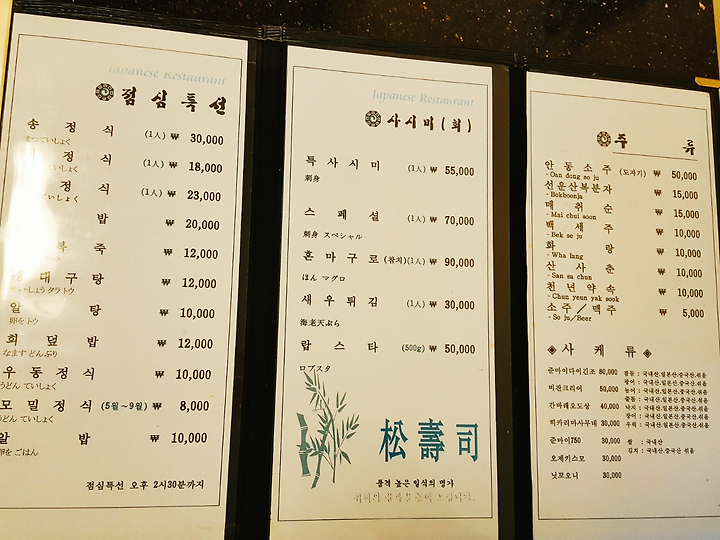 Japanese Restaurant
점 심 특 선
송 정 식 (1人) ₩ 30,000
まつていしょく
정 식 (1人) ₩ 18,000
ていしょく
정 식 (1人) ₩ 23,000
ていしょく
밥 ₩ 20,000
복 죽 ₩ 12,000
대 구 탕 ₩ 12,000
タラトウ
알 탕 ₩ 10,000
卵をトウ
회 덮 밥 ₩ 12,000
なます どんぶり
우 동 정 식 ₩ 10,000
うどん ていしょく
모 밀 정 식 (5월~9월) ₩ 8,000
うどん ていしょく
알 밥 ₩ 10,000
卵を ごはん
점심특선 오후 2시30분까지
Japanese Restaurant
사 시 미 ( 회 )
특 사 시 미 (1人) ₩ 55,000
刺身
스 페 셜 (1人) ₩ 70,000
刺身 スペシャル
혼 마 구 로 (참치)(1人) ₩ 90,000
ほん マグロ
새 우 튀 김 (1人) ₩ 30,000
海老天ぷら
랍 스 타 (500g) ₩ 50,000
ロブスタ
松 壽 司
품격 높은 일식의 명가
주 류
안 동 소 주 (도자기) ₩ 50,000
- Oan dong so ju
선운산복분자 ₩ 15,000
- Bokboonja
매 취 순 ₩ 15,000
- Mai chui soon
백 세 주 ₩ 10,000
- Bek se ju
화 랑 ₩ 10,000
- Wha lang
산 사 춘 ₩ 10,000
- San sa chun
천 년 약 속 ₩ 10,000
- Chun yeun yak sook
소 주 / 맥 주 ₩ 5,000
- So ju/Beer
◈ 사 케 류 ◈
준마이다이긴조 80,000
비잔크리어 50,000
간바레오도상 40,000
히카리마사무네 30,000
준마이750 30,000
오제키스모 30,000
닛꼬오니 30,000
광어 : 국내산,일본산,중국산,섞음
농어 : 국내산,일본산,중국산,섞음
줄돔 : 국내산,일본산,중국산,섞음
낙지 : 국내산,일본산,중국산,섞음
장어 : 국내산,일본산,중국산,섞음
우럭 : 국내산,일본산,중국산,섞음
쌀 : 국내산
김치 : 국내산,중국산 섞음